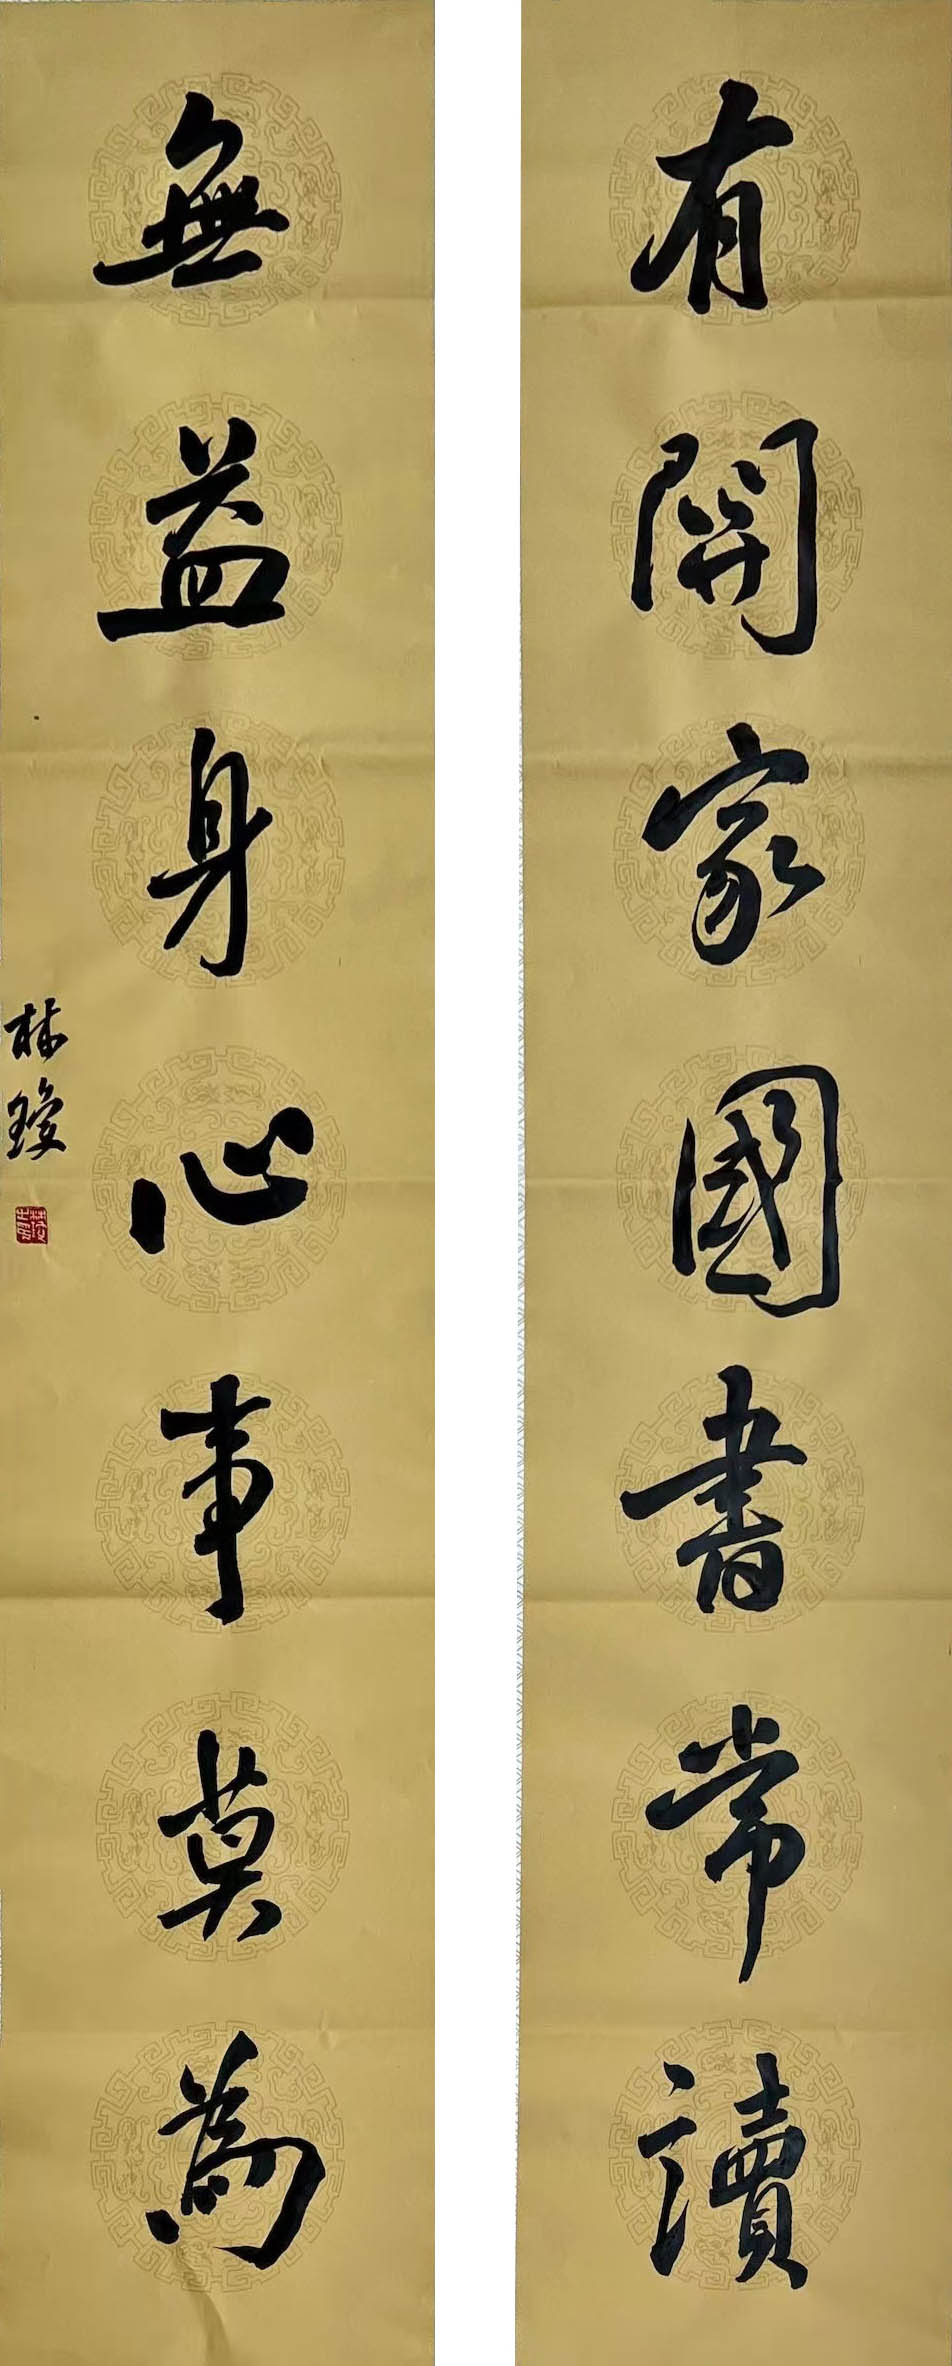 有関家國書常讀
無益身心事莫為
林瓊